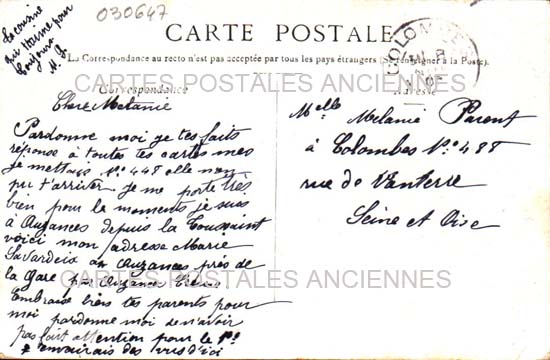 030647
Ta cousine
qui t'aime pour
toujours
M. S.
CARTE POSTALE
La Correspondance au recto n'est pas acceptée par tous les pays étrangers (Se renseigner à la Poste).
CARTES POSTALES ANCIENNES
Correspondance
Adresse
COLOMBES
Chere Melanie
Pardonne moi je tes faits
réponse à toutes tes cartes mes
je mettais No 448 elle non
pu t'arriver je me porte très
bien pour le moments je suis
à Auzances depuis la Toussaint
voici mon adresse Marie
Savardeix a Auzances près de
la Gare par Auzances Creuse
CARTES POSTALES ANCIENNES
Embrasse biens tes parents pour
moi pardonne moi de n'avoir
pas fait attention pour le No
je t'envairais des vus d'ici
Melle Melanie Parent
à Colombes No 488
rue de Nanterre
Seine et Oise